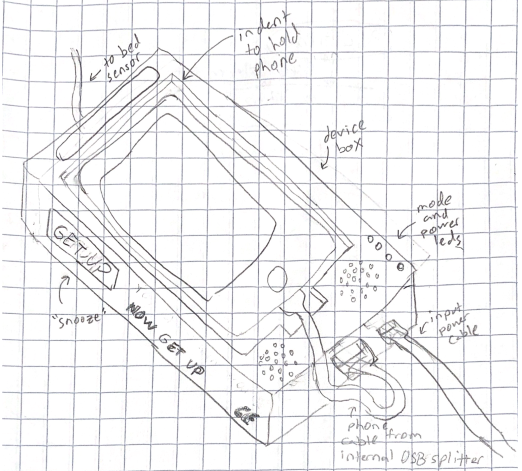 indent
to hold
phone
to bed
sensor
device
box
mode
and
power
leds
GET UP
"snooze"
NOW GET UP
input
power
cable
phone
cable from
internal USB splitter